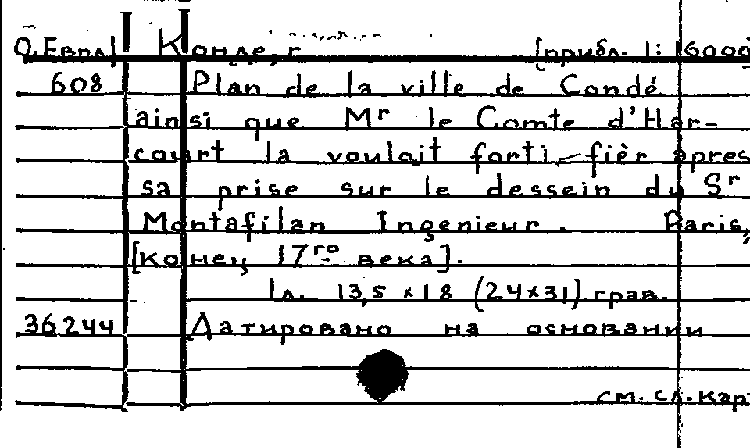 О.Евпа] Конде, г. [прибл. 1:16000
608 Plan de la ville de Condé
ainsi que Mr le Comte d'Har-
court la vouloit forti-fièr apres
sa prise sur le dessein du Sr
Montafilan Ingenieur. Paris,
[конец 17го века].
1 л. 13,5 x 18 (24x31). грав.
36244 Датировано на основании
см. сл. кар